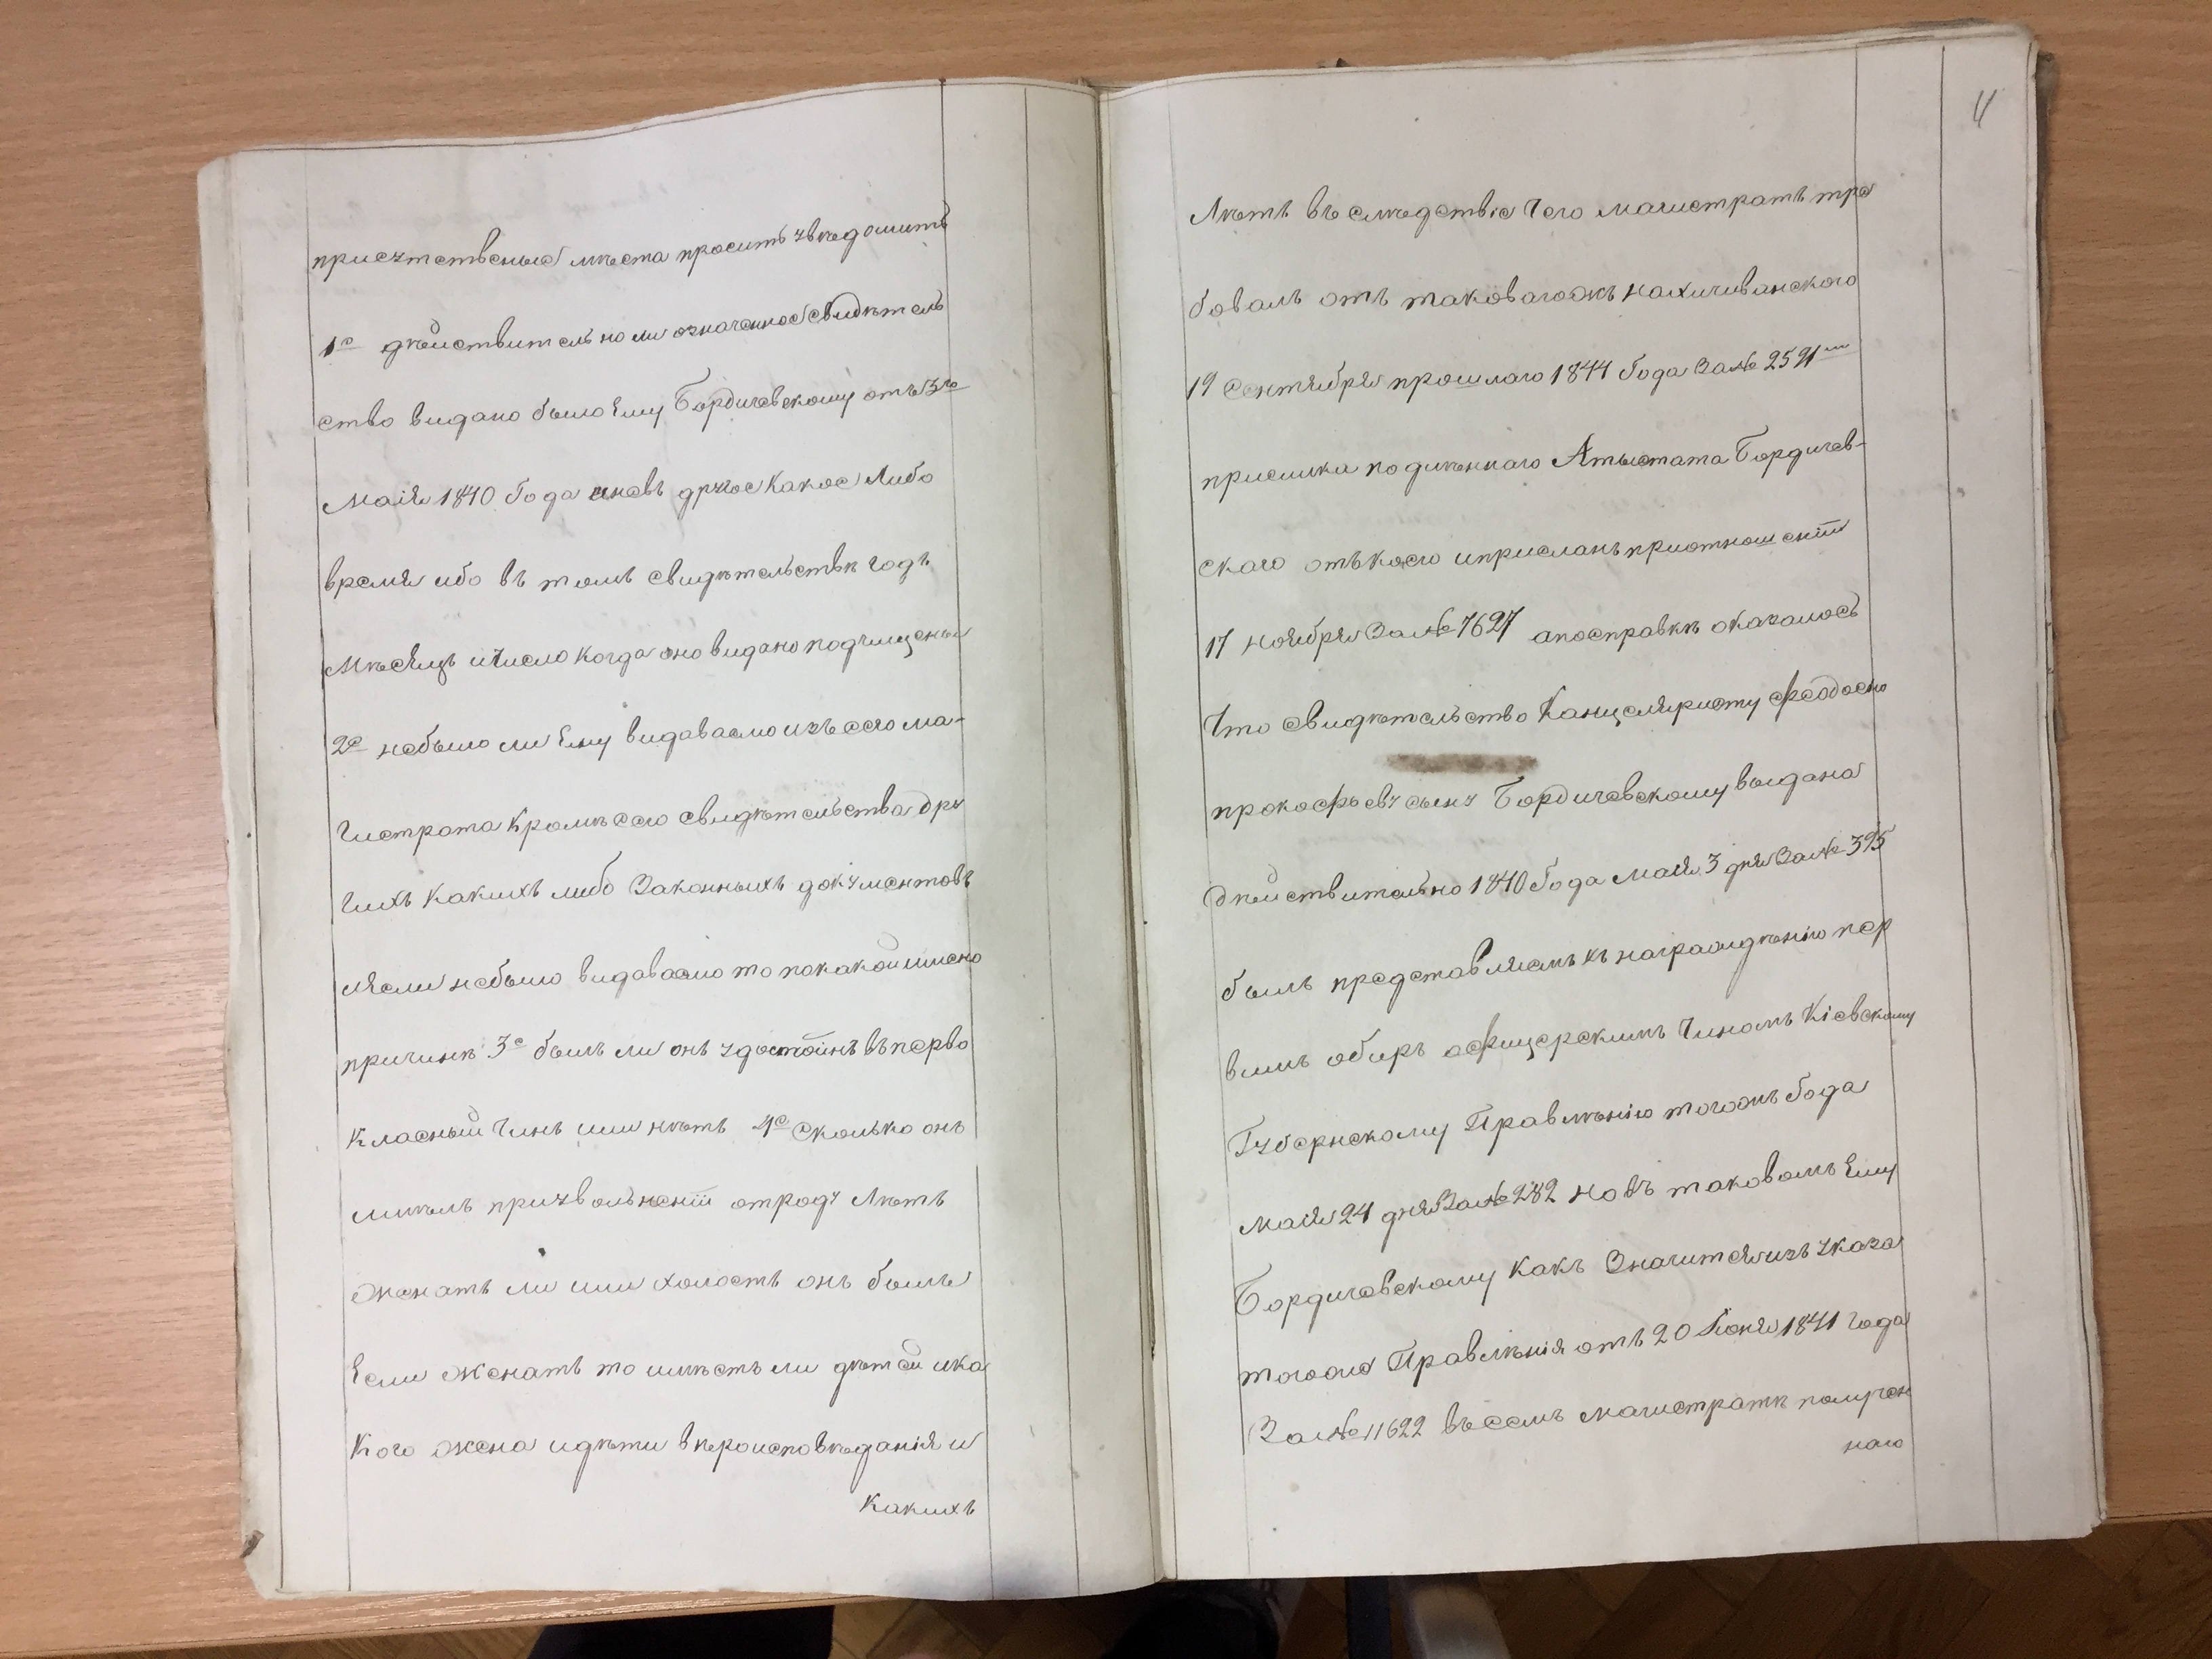 присутственные мѣста проситъ увѣдомить
1е дѣйствительно ли означенное свидѣтель
ство видано было Ему Бордичевскому отъ 3го
Маія 1840 Года иневъ другое Какое Либо
время ибо въ томъ свидѣтельствѣ годъ
Мѣсяцъ ичисло Когда оно видано подчищены
2е небыло ли Ему видаваемо изъ сего ма-
Гистрата Кромѣ сего свидѣтельства дру
Гихъ Какихъ либо Законныхъ документовъ
иЯсли небыло видаваемо то покакой имено
причинѣ 3е былъ ли онъ удостоинъ въперво
Класный Чинъ или нѣтъ 4е Сколько онъ
имѣлъ приувольненіи отроду Лѣтъ
Женатъ ли или холостъ онъ былъ
Если Женатъ то имѣетъ ли дѣтей ика
Кого жена идѣти вѣроисповѣданія и
Какихъ
4
Лѣтъ въ слѣдствіе Чего магистратъ тре
бовалъ отъ таковагожъ нахичиванского
19 Сентября прошлаго 1844 Года За № 2591м
присилки подлѣннаго Атыстата Бордичев-
скаго отъкоего иприсланъ приотношеніи
17 ноября За № 7627 апосправкѣ оказалось
Что свидѣтельство Канцеляристу Феодосію
прокофьеву сыну Бордичевскому выдана
Дѣйствительно 1840 Года Маія 3 дня За № 395
былъ представляемъ къ награждѣнію пер
вимъ обиръ афицерскимъ Чиномъ Кіевскому
Губернскому Правлѣнію тогожъ Года
Маія 24 дня За № 282 но въ таковомъ Ему
Бордичевскому Какъ Значится изъ указа
тогоже Правлѣнія отъ 20 Іюня 1841 года
За № 11622 въ семъ Магистратѣ получен
наго